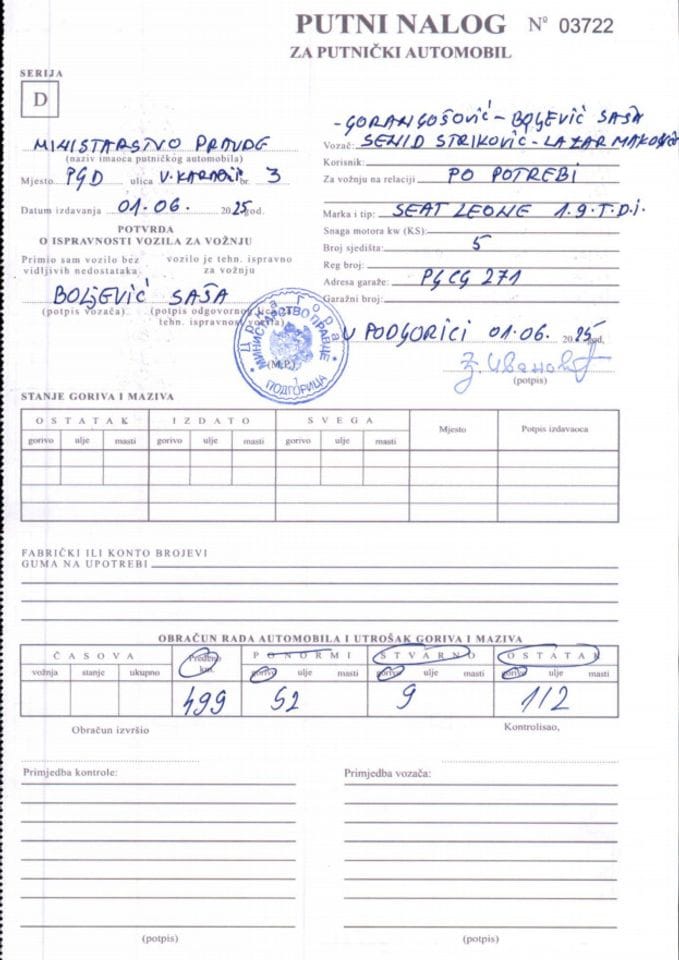 PUTNI NALOG Nº 03722
ZA PUTNIČKI AUTOMOBIL
SERIJA
D
MINISTARSTVO PRAVDE
(naziv imaoca putničkog automobila)
Mjesto PGD ulica V. KARADŽ. br. 3
Datum izdavanja 01.06. 2025 god.
POTVRDA
O ISPRAVNOSTI VOZILA ZA VOŽNJU
Primio sam vozilo bez vidljivih nedostataka
vozilo je tehn. ispravno za vožnju
BOLJEVIĆ SAŠA
(potpis vozača) (potpis odgovornog lica za tehn. ispravnost vozila)
- GORAN GOŠOVIĆ - BOLJEVIĆ SAŠA
Vozač: SENID STRIKOVIĆ - LAZAR MAKOVIĆ
Korisnik:
Za vožnju na relaciji PO POTREBI
Marka i tip: SEAT LEONE 1.9. T.D.I.
Snaga motora kw (KS):
Broj sjedišta: 5
Reg broj:
Adresa garaže: PGCG 271
Garažni broj:
U PODGORICI 01.06. 2025 god,
(potpis)
Црна Гора
МИНИСТАРСТВО ПРАВДЕ
1
ПОДГОРИЦА
(M.P.)
STANJE GORIVA I MAZIVA
OSTATAK IZDATO SVEGA Mjesto Potpis izdavaoca
gorivo ulje masti gorivo ulje masti gorivo ulje masti
FABRIČKI ILI KONTO BROJEVI
GUMA NA UPOTREBI
OBRAČUN RADA AUTOMOBILA I UTROŠAK GORIVA I MAZIVA
ČASOVA Pređeno km. PO NORMI STVARNO OSTATAK
vožnja stanje ukupno gorivo ulje masti gorivo ulje masti gorivo ulje masti
499 52 9 1/2
Obračun izvršio Kontrolisao,
Primjedba kontrole: Primjedba vozača:
(potpis) (potpis)